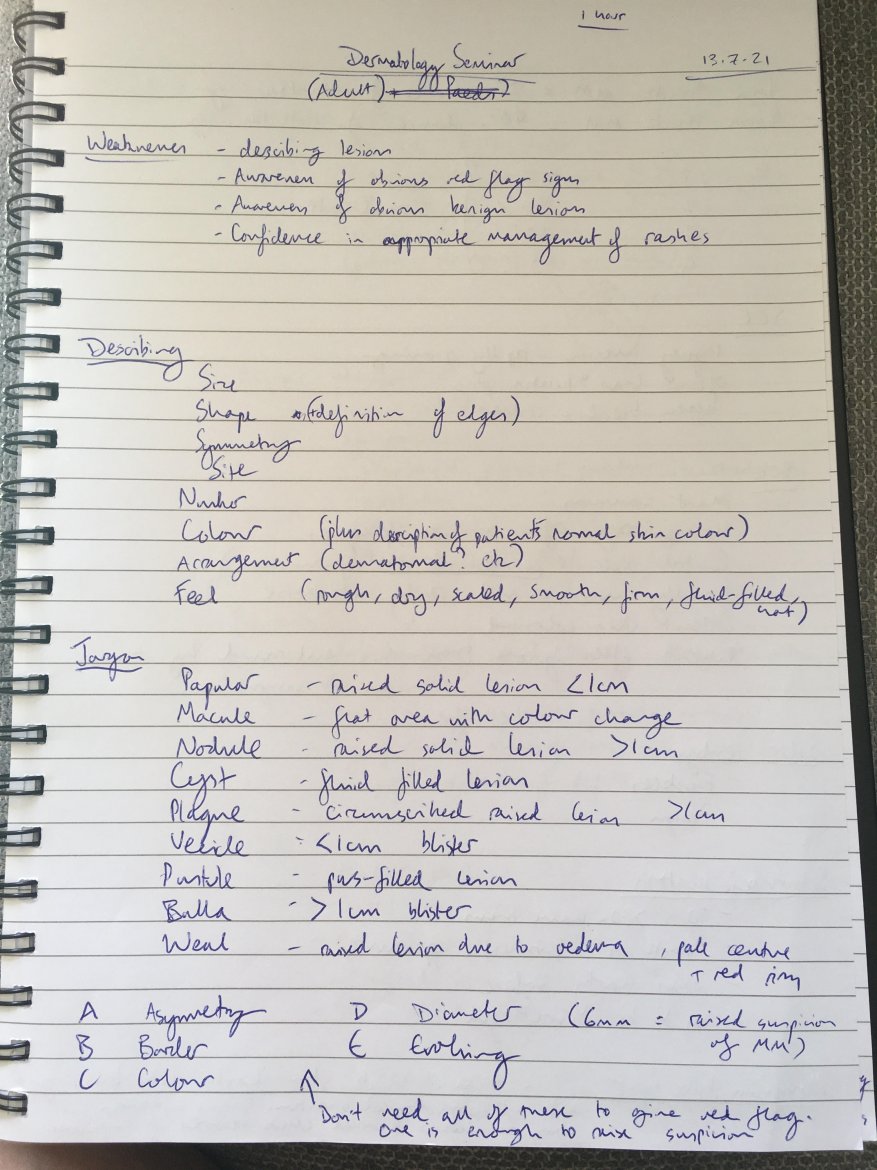 1 hour
Dermatology Seminar
13.7.21
(Adult) + Paeds)
Weaknesses - describing lesion
- Awareness of obvious red flag signs
- Awareness of obvious benign lesion
- Confidence in appropriate management of rashes
Describing
Size
Shape (+definition of edges)
Symmetry
Site
Number
Colour (plus description of patient's normal skin colour)
Arrangement (dermatomal? etc)
Feel (rough, dry, scaled, smooth, firm, fluid-filled,
hot)
Jargon
Papular - raised solid lesion <1cm
Macule - flat area with colour change
Nodule - raised solid lesion >1cm
Cyst - fluid filled lesion
Plaque - circumscribed raised lesion >1cm
Vesicle - <1cm blister
Pustule - pus-filled lesion
Bulla - >1cm blister
Weal - raised lesion due to oedema, pale centre
+ red rim
A Asymmetry D Diameter (6mm = raised suspicion
B Border E Evolving of MM)
C Colour ↑
Don't need all of these to give red flag.
One is enough to raise suspicion